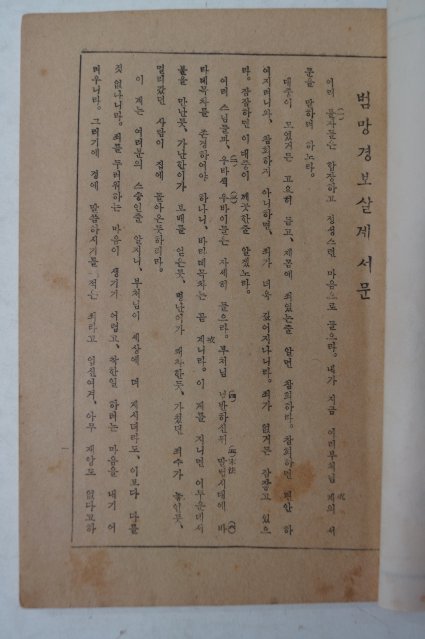 범망경보살계서문
여러 불자들은 합장하고 정성스런 마음으로 들으라. 내가 지금 여러부처님 계의 서
문을 말하려 하노라.
대중이 모였거든 고요히 듣고, 제몸에 죄있는줄 알면 참회하라. 참회하면 편안 하
여지려니와, 참회하지 아니하면, 죄가 더욱 깊어지나니라. 죄가 없거든 잠잠코 있으
라. 잠잠하면 이 대중이 깨끗한줄 알겠노라.
여러 스님들과, 우바새 우바이들은 자세히 들으라. 부처님 열반하신뒤 말법시대에 바
라제목차를 존경하여야 하나니, 바라제목차는 곧 계니라. 이 계를 지니면 어두운데서
불을 만난듯, 가난한이가 보배를 얻은듯, 병난이가 쾌차한듯, 가쳤던 죄수가 놓인듯,
멀리갔던 사람이 집에 돌아온듯하리라.
이 계는 여러분의 스승인줄 알지니, 부처님이 세상에 더 계시더라도, 이보다 다를
것 없나니라. 죄를 두려워하는 마음이 생기기 어렵고, 착한일 하려는 마음을 내기 어
려우니라. 그러기에 경에 말씀하시기를 적은 죄라고 업신여겨, 아무 재앙도 없다고하
一